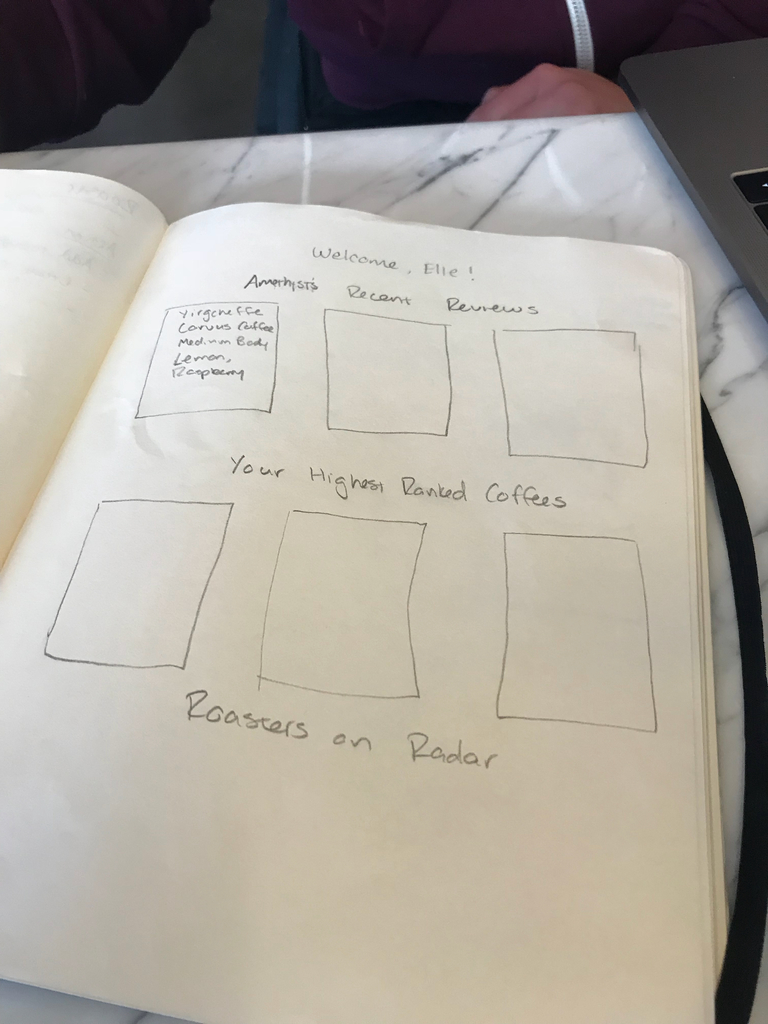 Welcome, Elle!
Amethyst's Recent Reviews
Yirgcheffe
Corvus Coffee
Medium Body
Lemon,
Raspberry
Your Highest Ranked Coffees
Roasters on Radar